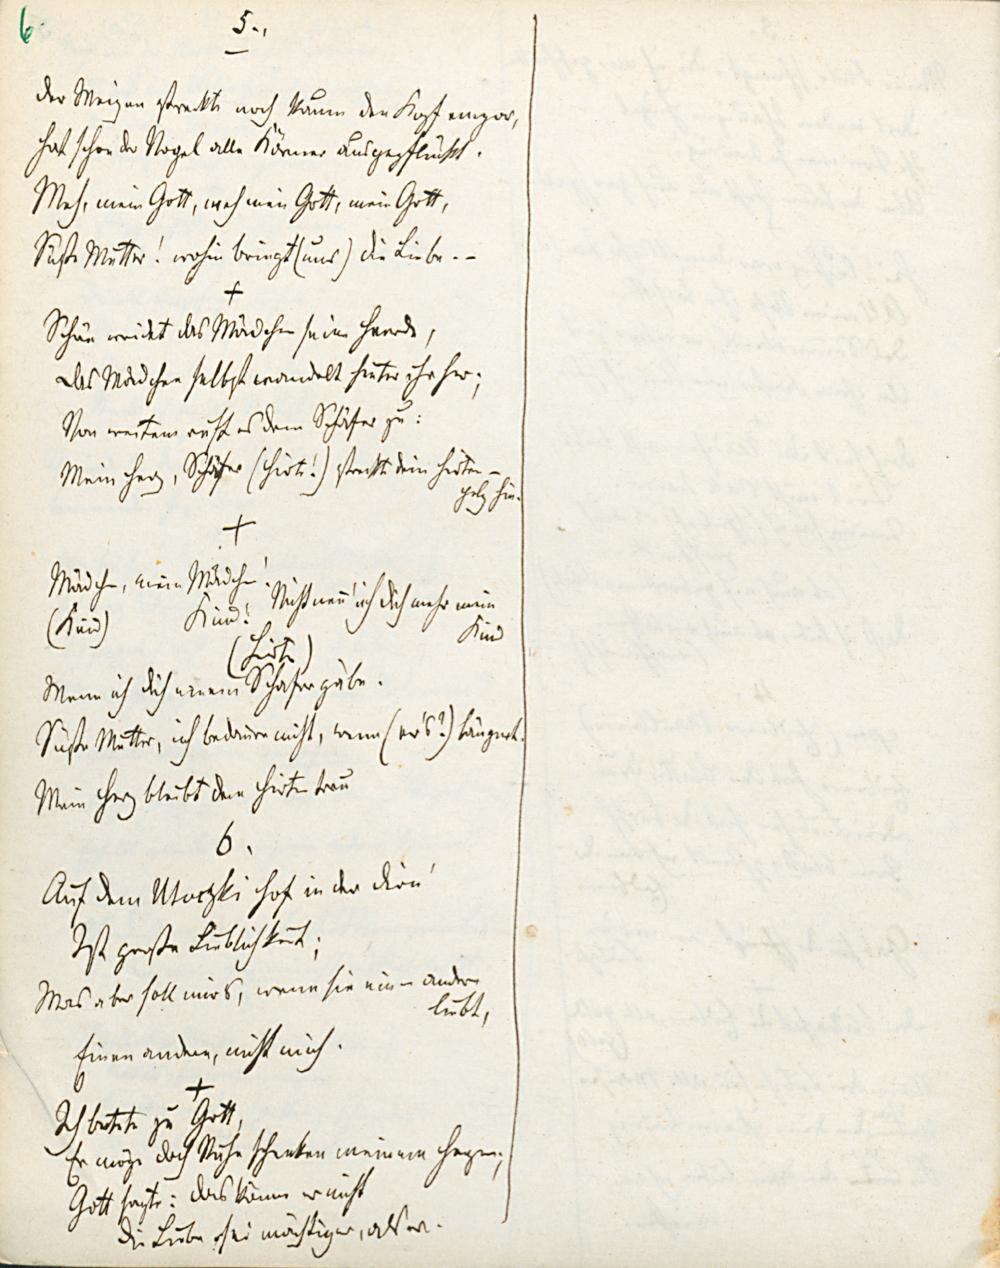 6.
5.,
Der Weizen streckte noch kaum den Kopf empor,
hat schon der Vogel alle Körner ausgepflückt.
Weh, mein Gott, weh mein Gott, mein Gott,
Süße Mutter! wohin bringt (uns) die Liebe. --
+
Schön weidet das Mädchen seine Heerde,
Das Mädchen selbst wandelt hinter ihr her;
Von weitem ruft es dem Schäfer zu:
Mein Herz, Schäfer (Hirte!) streckt dein Hirten-
pelz hin.
+
Mädchen, mein Mädchen!
(Kind) Kind! Nicht nenn' ich dich mehr mein
Kind
(Hirte)
Wenn ich dich einem Schäfer gäbe.
Süße Mutter, ich bedaure nicht, wenn (er's?)
Mein Herz bleibt dem Hirten treu
6.
Auf dem Hof in der
Ist große Lieblichkeit;
Was aber soll mir's, wenn sie einen andern
liebt,
Einen andern, nicht mich.
+
Ich betete zu Gott,
Er möge doch Ruhe schenken meinem Herzen;
Gott sagte: das könne er nicht
Die Liebe sei mächtiger, als er.